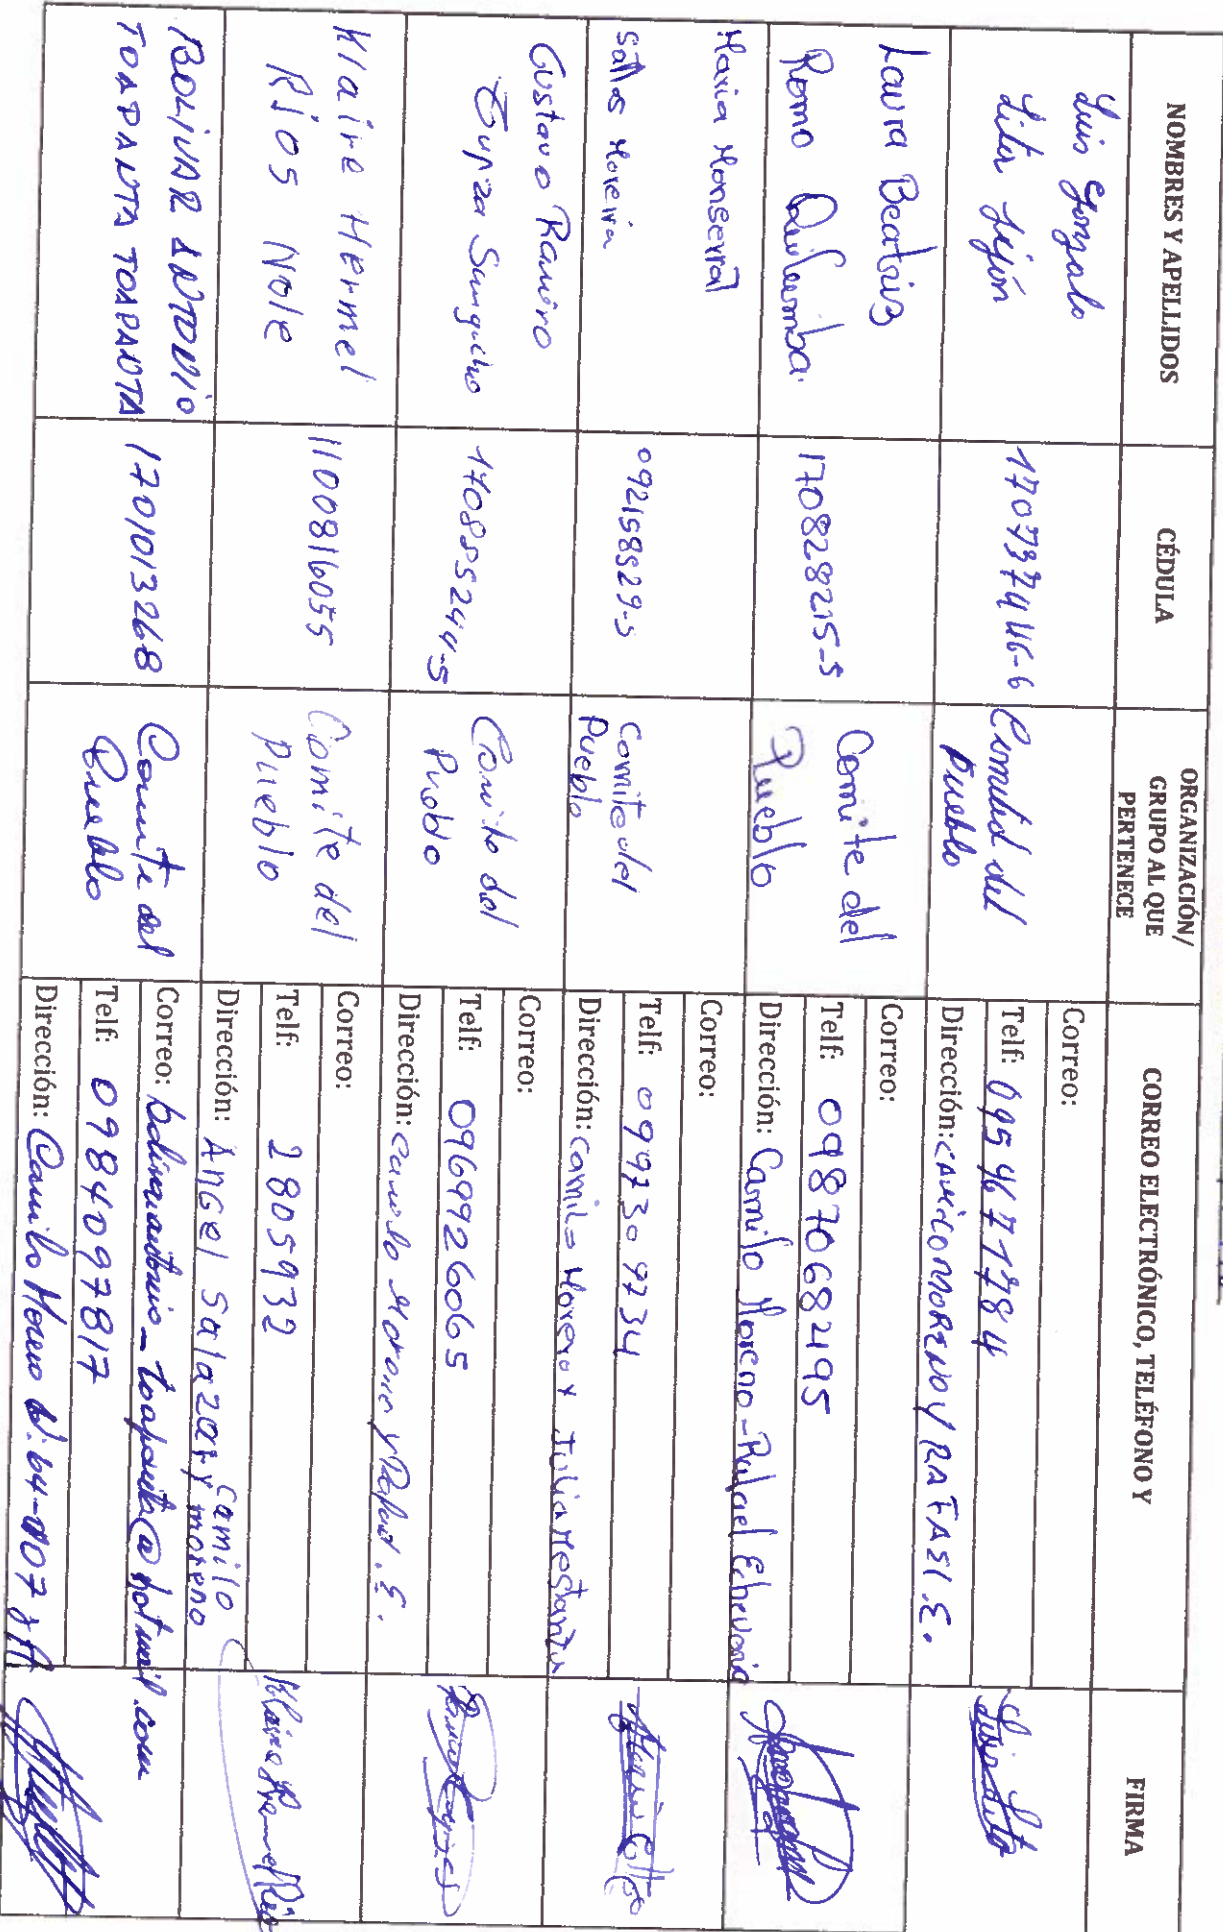 NOMBRES Y APELLIDOS
CÉDULA
ORGANIZACIÓN/
GRUPO AL QUE
PERTENECE
CORREO ELECTRÓNICO, TELÉFONO Y
FIRMA
Luis Gonzalo
170737446-6
del
Pueblo
Correo:
Telf: 0954671784
Dirección: MORENO Y RAFAEL E.
Laura Beatriz
Romo Quilumba.
170828215-5
Comite del
Pueblo
Correo:
Telf: 0987068495
Dirección: Camilo Moreno - Rafael Echeverria
Maria Monserrat
Salas Moreira
092158529-5
Comite del
Pueblo
Correo:
Telf: 0997309734
Dirección: Camilo Moreno y Julia
Gustavo Ramiro
170885244-5
Comite del
Pueblo
Correo:
Telf: 0969926065
Dirección: Moreno y
Klaire Hermel
Ríos Nole
1100816055
Comite del
Pueblo
Correo:
Telf: 2805932
Dirección: Angel Salazar y camilo
moreno
BOLIVAR ANTONIO
TOAPANTA TOAPANTA
1701013268
Comite del
Pueblo
Correo: bolivarantonio_toapanta@hotmail.com
Telf: 0984097817
Dirección: Camilo Moreno